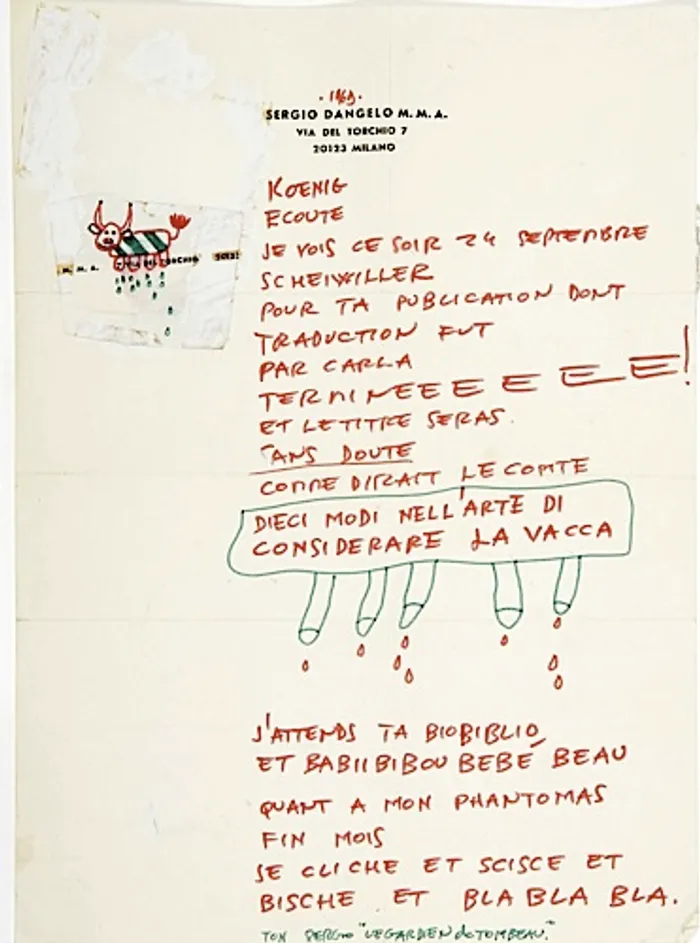 ·1969·
SERGIO DANGELO M.M.A.
VIA DEL TORCHIO 7
20123 MILANO
M. M. A. VIA DEL TORCHIO 20123
KOENIG
ECOUTE
JE VOIS CE SOIR 24 SEPTEMBRE
SCHEIWILLER
POUR TA PUBLICATION DONT
TRADUCTION FUT
PAR CARLA
TERMINEEE E E E E!
ET LE TITRE SERAS
SANS DOUTE
COMME DIRAIT LE COMTE
DIECI MODI NELL'ARTE DI
CONSIDERARE LA VACCA
J'ATTENDS TA BIOBIBLIO
ET BABIIBIBOU BEBÉ BEAU
QUANT A MON PHANTOMAS
FIN MOIS
SE CLICHE ET SCISCE ET
BISCHE ET BLA BLA BLA.
TON SERGIO "LE GARDIEN du TOMBEAU"